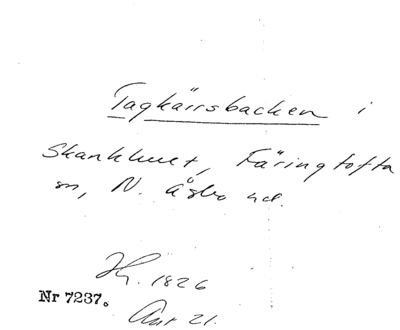 Tagkärrsbacken i
Skankhult, Färingtofta
sn, N. Åsbo hd.
1826
Nr 7237.
21.